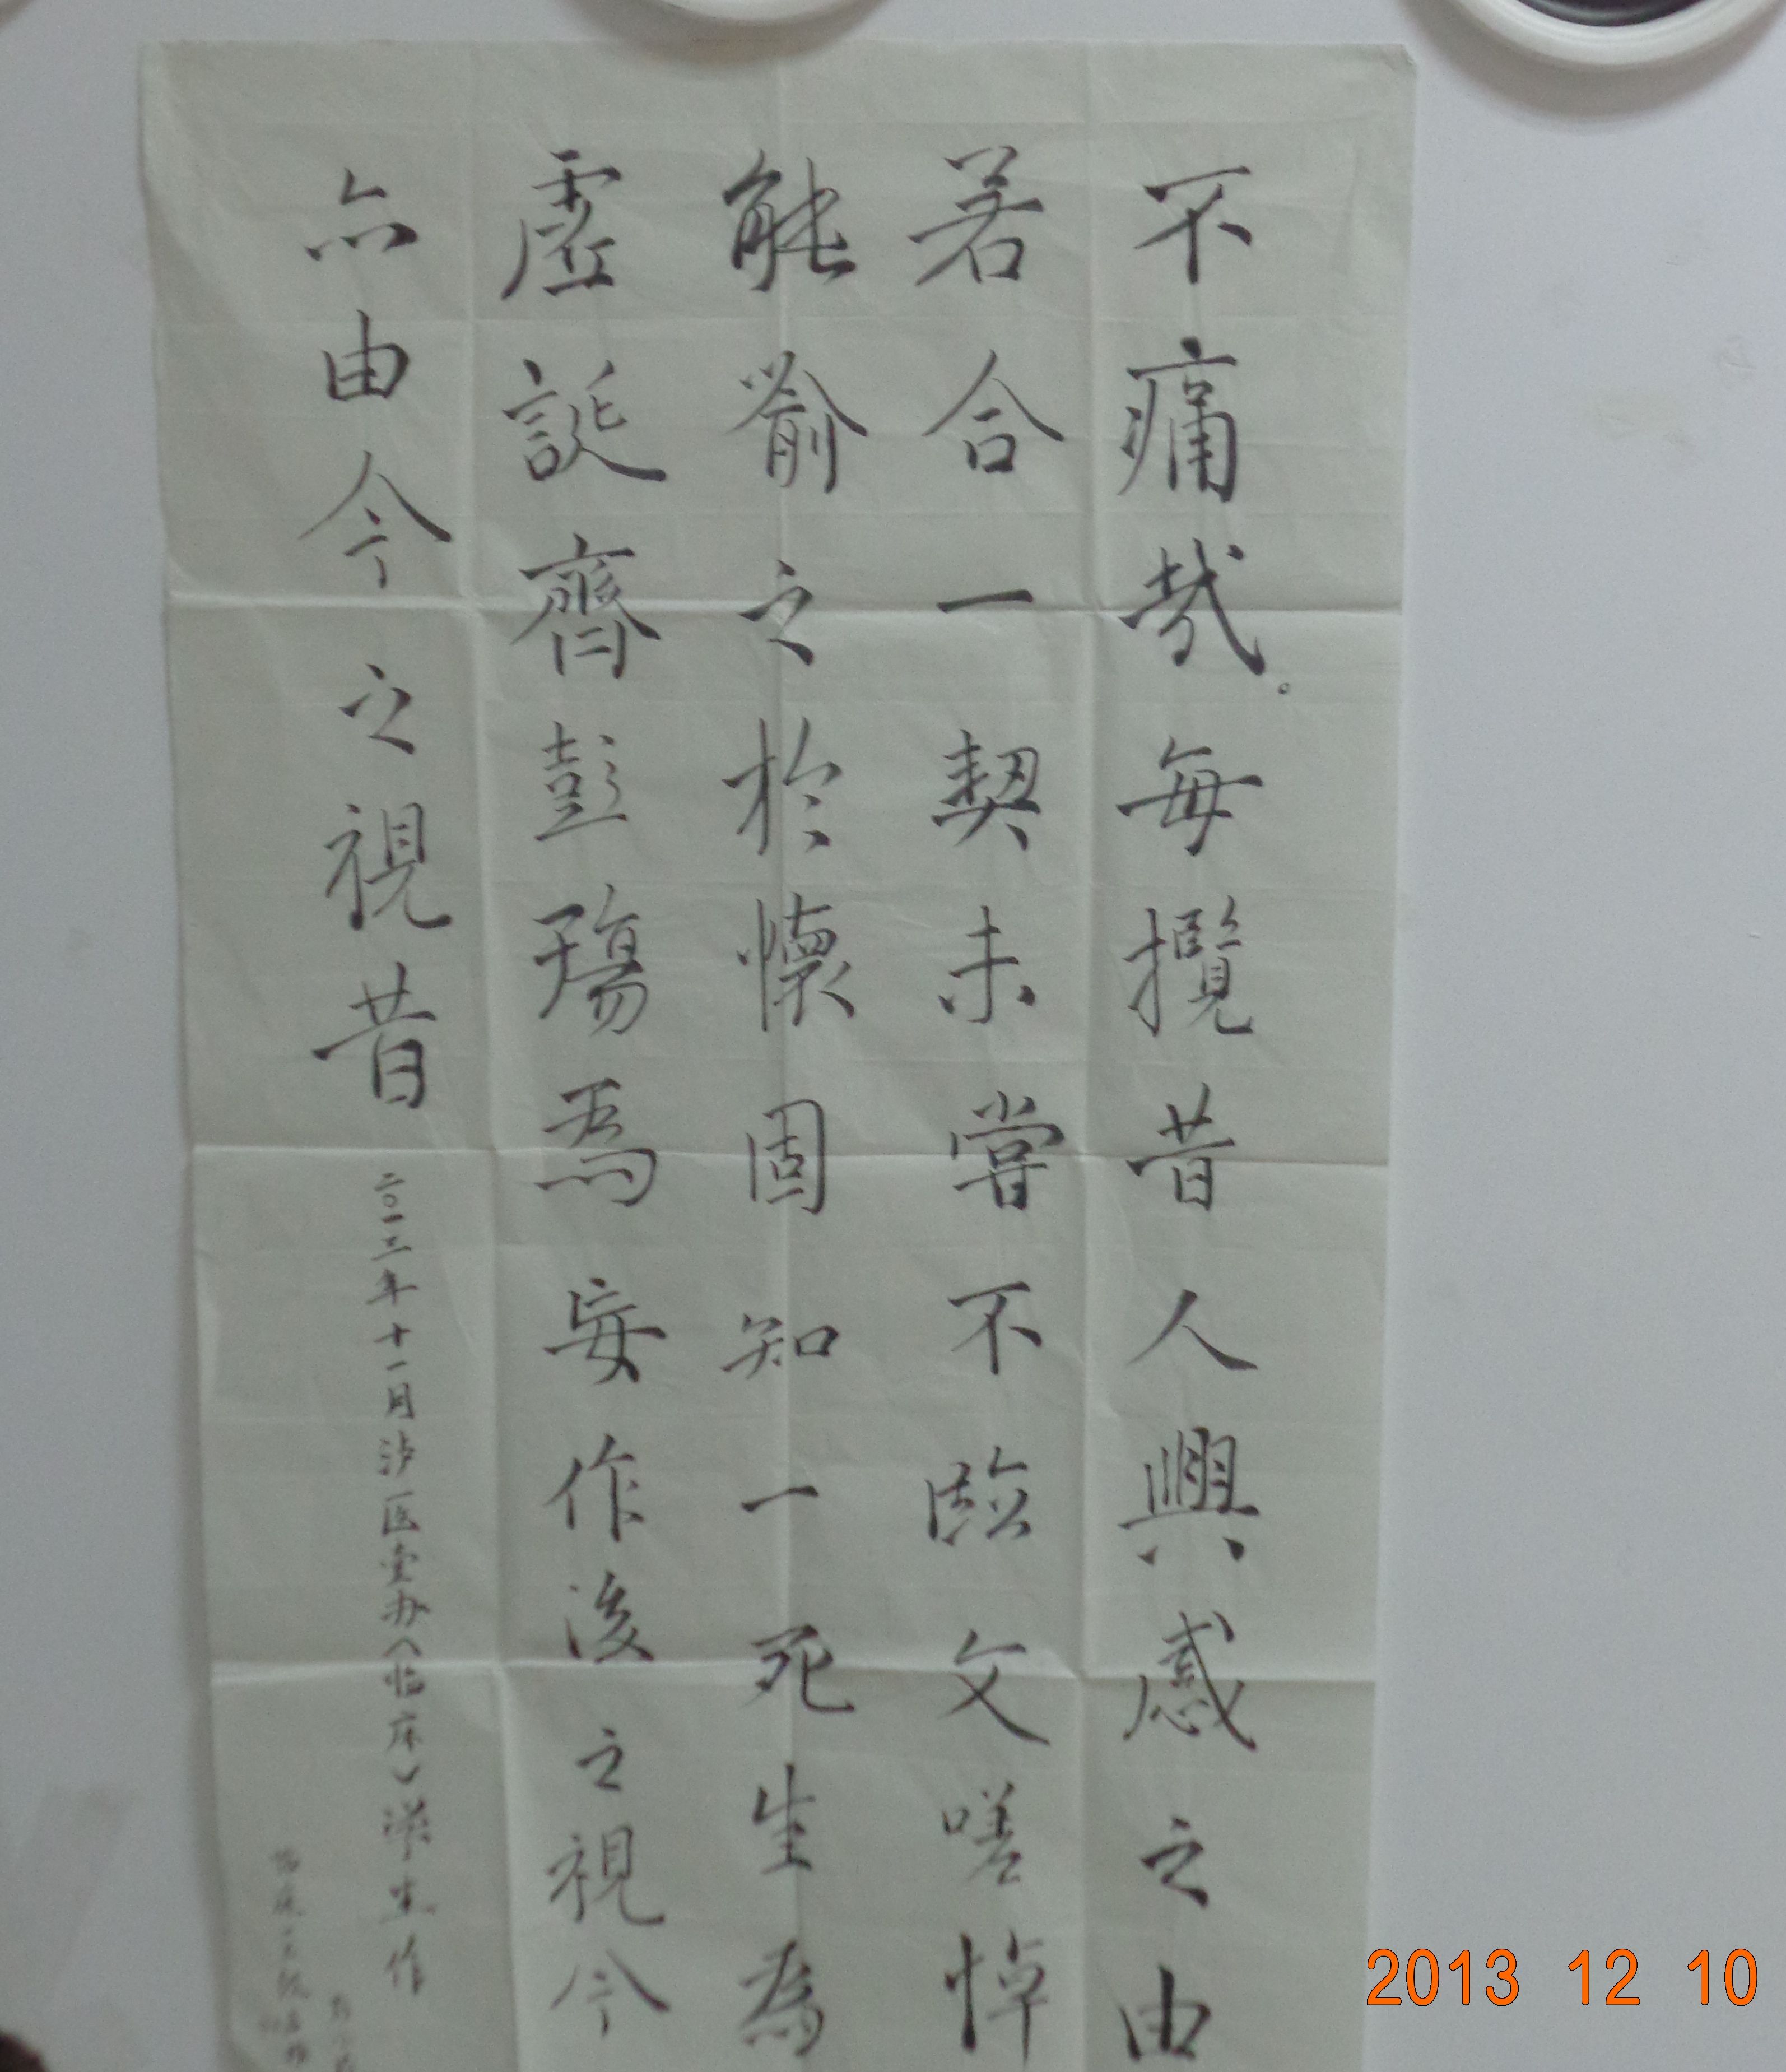 不痛哉。每攬昔人興感之由
若合一契未嘗不臨文嗟悼
能喻之於懷固知一死生為
虛誕齊彭殤為妄作後之視今
亦由今之視昔
二〇一三年十一月泸医党办(临床)学生作
2013 12 10